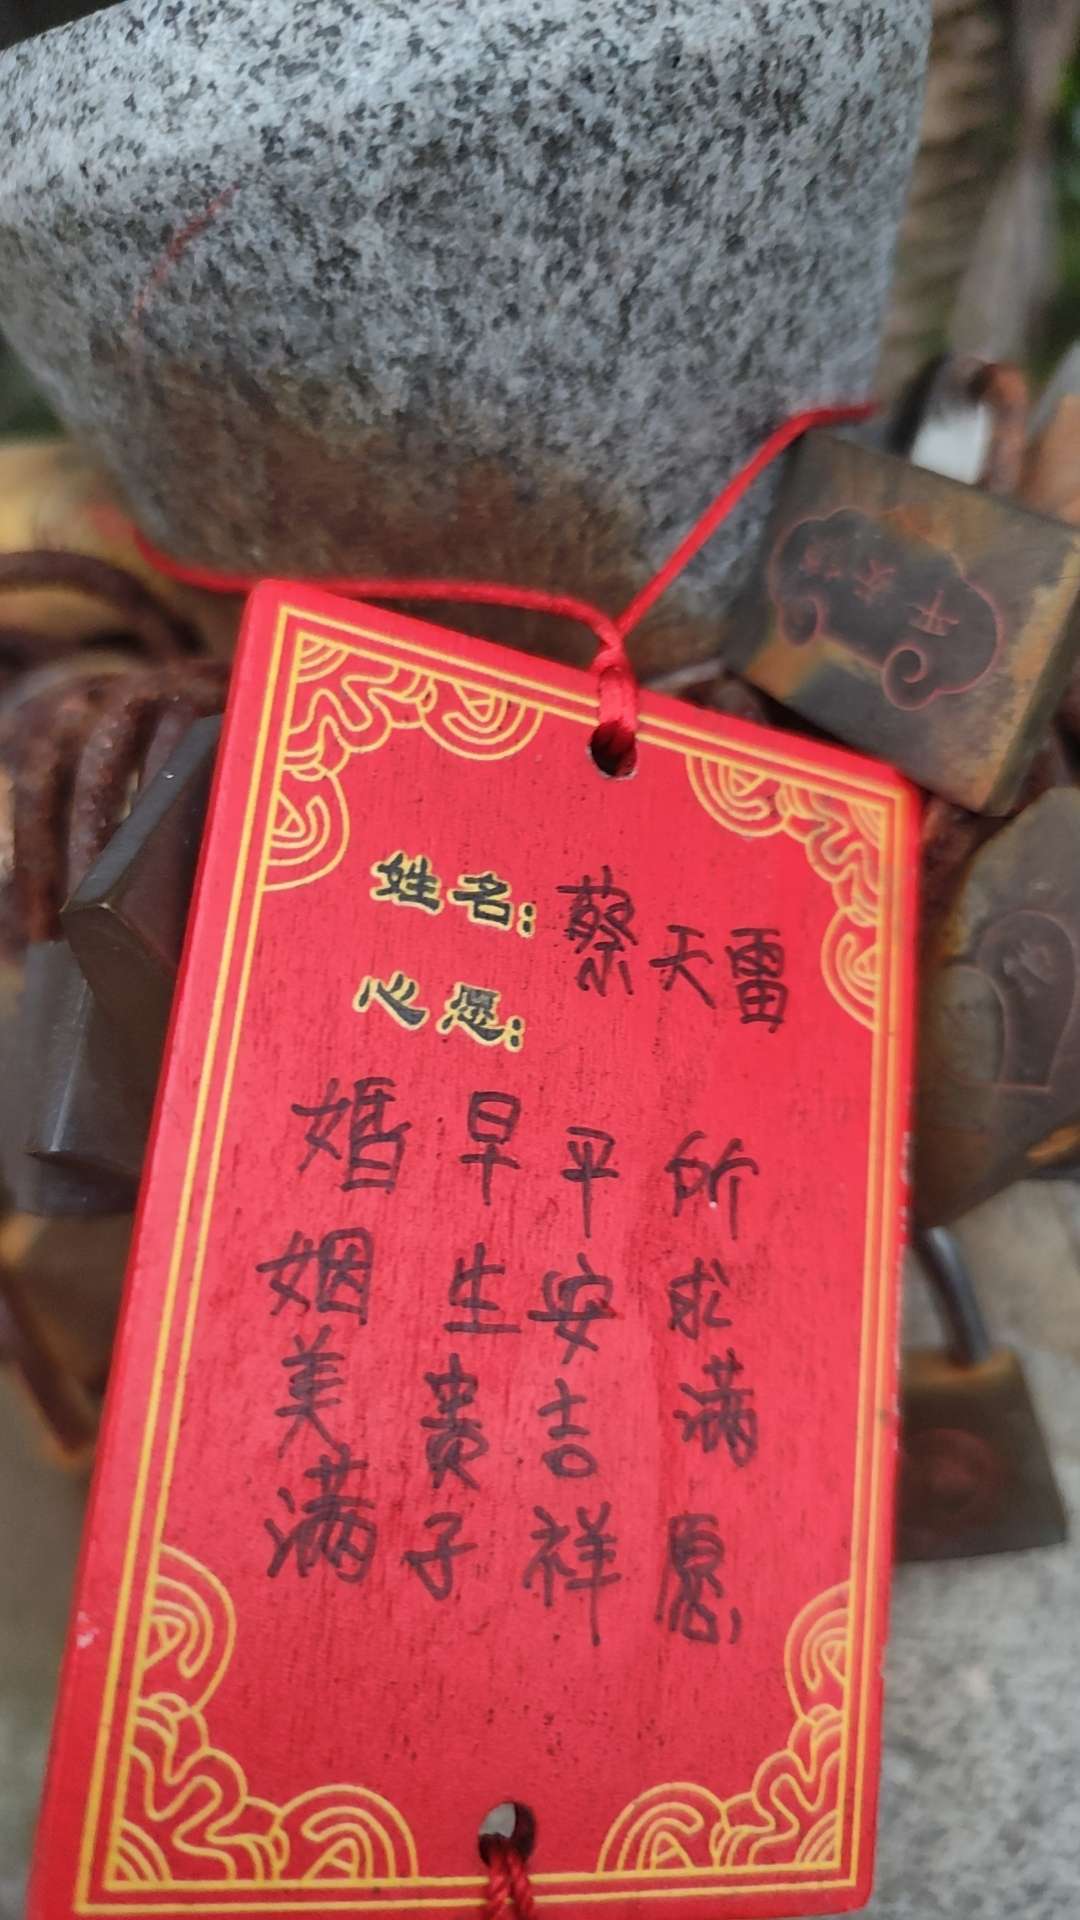 姓名：蔡天雷
心愿：
婚姻美满
早生贵子
平安吉祥
所求满愿
平安